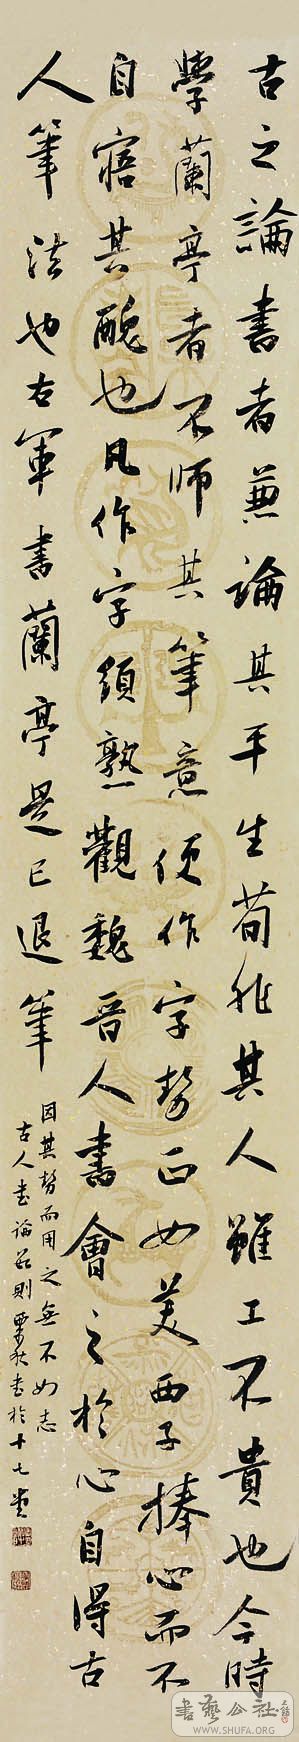 古之論書者兼論其平生苟非其人雖工不貴也今時
學蘭亭者不師其筆意便作字勢正如美西子捧心而不
自寤其醜也凡作字須熟觀魏晉人書會之於心自得古
人筆法也右軍書蘭亭是已退筆
因其勢而用之無不如志
古人書論則秋書於十七堂
書藝公社
WWW.SHUFA.ORG